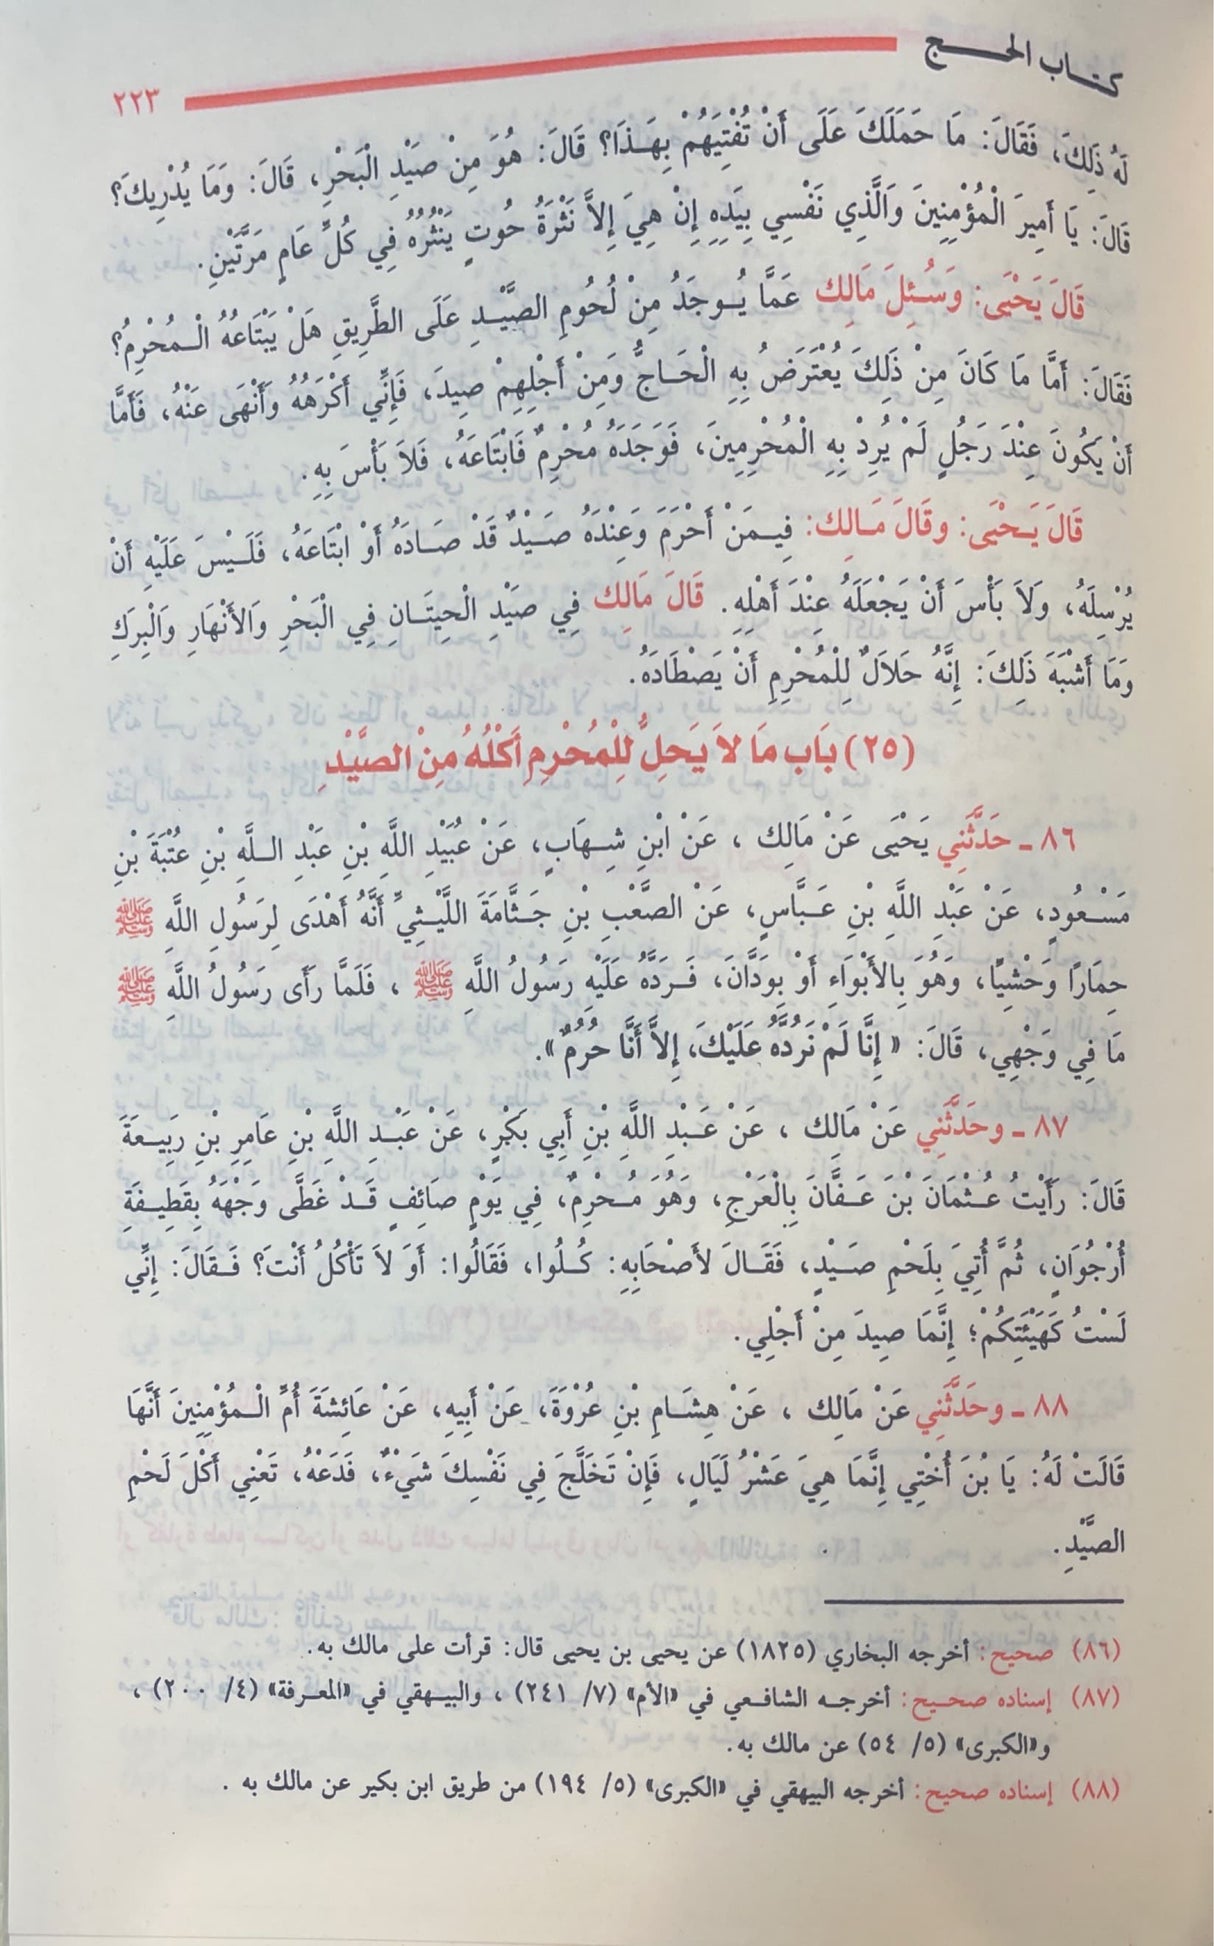 كتاب الحج
٢٢٣
لَهُ ذَلِكَ، فَقَالَ: مَا حَمَلَكَ عَلَى أَنْ تُفْتِيَهُمْ بِهَذَا؟ قَالَ: هُوَ مِنْ صَيْدِ الْبَحْرِ، قَالَ: وَمَا يُدْرِيكَ؟
قَالَ: يَا أَمِيرَ الْمُؤْمِنِينَ وَالَّذِي نَفْسِي بِيَدِهِ إِنْ هِيَ إِلاَّ نَثْرَةُ حُوتٍ يَنْثُرُهُ فِي كُلِّ عَامٍ مَرَّتَيْنِ.
قَالَ يَحْيَى: وَسُئِلَ مَالِك عَمَّا يُوجَدُ مِنْ لُحُومِ الصَّيْدِ عَلَى الطَّرِيقِ هَلْ يَبْتَاعُهُ الْمُحْرِمُ؟
فَقَالَ: أَمَّا مَا كَانَ مِنْ ذَلِكَ يُعْتَرَضُ بِهِ الْحَاجُّ وَمِنْ أَجْلِهِمْ صِيدَ، فَإِنِّي أَكْرَهُهُ وَأَنْهَى عَنْهُ، فَأَمَّا
أَنْ يَكُونَ عِنْدَ رَجُلٍ لَمْ يُرِدْ بِهِ الْمُحْرِمِينَ، فَوَجَدَهُ مُحْرِمٌ فَابْتَاعَهُ، فَلاَ بَأْسَ بِهِ.
قَالَ يَحْيَى: وقَالَ مَالِك: فِيمَنْ أَحْرَمَ وَعِنْدَهُ صَيْدٌ قَدْ صَادَهُ أَوْ ابْتَاعَهُ، فَلَيْسَ عَلَيْهِ أَنْ
يُرْسِلَهُ، وَلاَ بَأْسَ أَنْ يَجْعَلَهُ عِنْدَ أَهْلِهِ. قَالَ مَالِك فِي صَيْدِ الْحِيتَانِ فِي الْبَحْرِ وَالأَنْهَارِ وَالْبِرَكِ
وَمَا أَشْبَهَ ذَلِكَ: إِنَّهُ حَلاَلٌ لِلْمُحْرِمِ أَنْ يَصْطَادَهُ.
(٢٥) بَاب مَا لاَ يَحِلُّ لِلْمُحْرِمِ أَكْلُهُ مِنْ الصَّيْدِ
٨٦ ـ حَدَّثَنِي يَحْيَى عَنْ مَالِك ، عَنْ ابْنِ شِهَابٍ، عَنْ عُبَيْدِ اللَّهِ بْنِ عَبْدِ اللَّهِ بْنِ عُتْبَةَ بْنِ
مَسْعُودٍ، عَنْ عَبْدِ اللَّهِ بْنِ عَبَّاسٍ، عَنْ الصَّعْبِ بْنِ جَثَّامَةَ اللَّيْثِيِّ أَنَّهُ أَهْدَى لِرَسُولِ اللَّهِ ﷺ
حِمَارًا وَحْشِيًّا، وَهُوَ بِالأَبْوَاءِ أَوْ بِوَدَّانَ، فَرَدَّهُ عَلَيْهِ رَسُولُ اللَّهِ ﷺ ، فَلَمَّا رَأَى رَسُولُ اللَّهِ ﷺ
مَا فِي وَجْهِي، قَالَ: « إِنَّا لَمْ نَرُدَّهُ عَلَيْكَ، إِلاَّ أَنَّا حُرُمٌ ».
٨٧ ـ وحَدَّثَنِي عَنْ مَالِك ، عَنْ عَبْدِ اللَّهِ بْنِ أَبِي بَكْرٍ، عَنْ عَبْدِ اللَّهِ بْنِ عَامِرِ بْنِ رَبِيعَةَ
قَالَ: رَأَيْتُ عُثْمَانَ بْنَ عَفَّانَ بِالْعَرْجِ، وَهُوَ مُحْرِمٌ، فِي يَوْمٍ صَائِفٍ قَدْ غَطَّى وَجْهَهُ بِقَطِيفَةِ
أُرْجُوَانٍ، ثُمَّ أُتِيَ بِلَحْمِ صَيْدٍ، فَقَالَ لأَصْحَابِهِ: كُلُوا، فَقَالُوا: أَوَ لاَ تَأْكُلُ أَنْتَ؟ فَقَالَ: إِنِّي
لَسْتُ كَهَيْئَتِكُمْ؛ إِنَّمَا صِيدَ مِنْ أَجْلِي.
٨٨ ـ وحَدَّثَنِي عَنْ مَالِك ، عَنْ هِشَامِ بْنِ عُرْوَةَ، عَنْ أَبِيهِ، عَنْ عَائِشَةَ أُمِّ الْمُؤْمِنِينَ أَنَّهَا
قَالَتْ لَهُ: يَا بْنَ أُخْتِي إِنَّمَا هِيَ عَشْرُ لَيَالٍ، فَإِنْ تَخَلَّجَ فِي نَفْسِكَ شَيْءٌ، فَدَعْهُ، تَعْنِي أَكْلَ لَحْمِ
الصَّيْدِ.
(٨٦) صحيح: أخرجه البخاري (١٨٢٥) عن يحيى بن يحيى قال: قرأت على مالك به.
(٨٧) إسناده صحيح: أخرجه الشافعي في «الأم» (٧/ ٢٤١) ، والبيهقي في «المعرفة» (٤/ ٢٠٠) ،
و«الكبرى» (٥/ ٥٤) عن مالك به.
(٨٨) إسناده صحيح: أخرجه البيهقي في «الكبرى» (٥/ ١٩٤) من طريق ابن بكير عن مالك به .